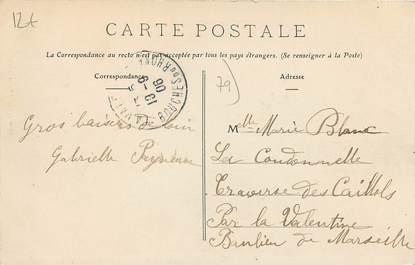 12t
CARTE POSTALE
La Correspondance au recto n'est pas acceptée par tous les pays étrangers. (Se renseigner à la Poste)
Correspondance
Adresse
BOUCHES DU RHONE
13 -9
06
79
Gros baisers
Gabrielle
Melle Marie Blanc
La
Traverse des Caillols
Par la Valentine
Banlieu de Marseille